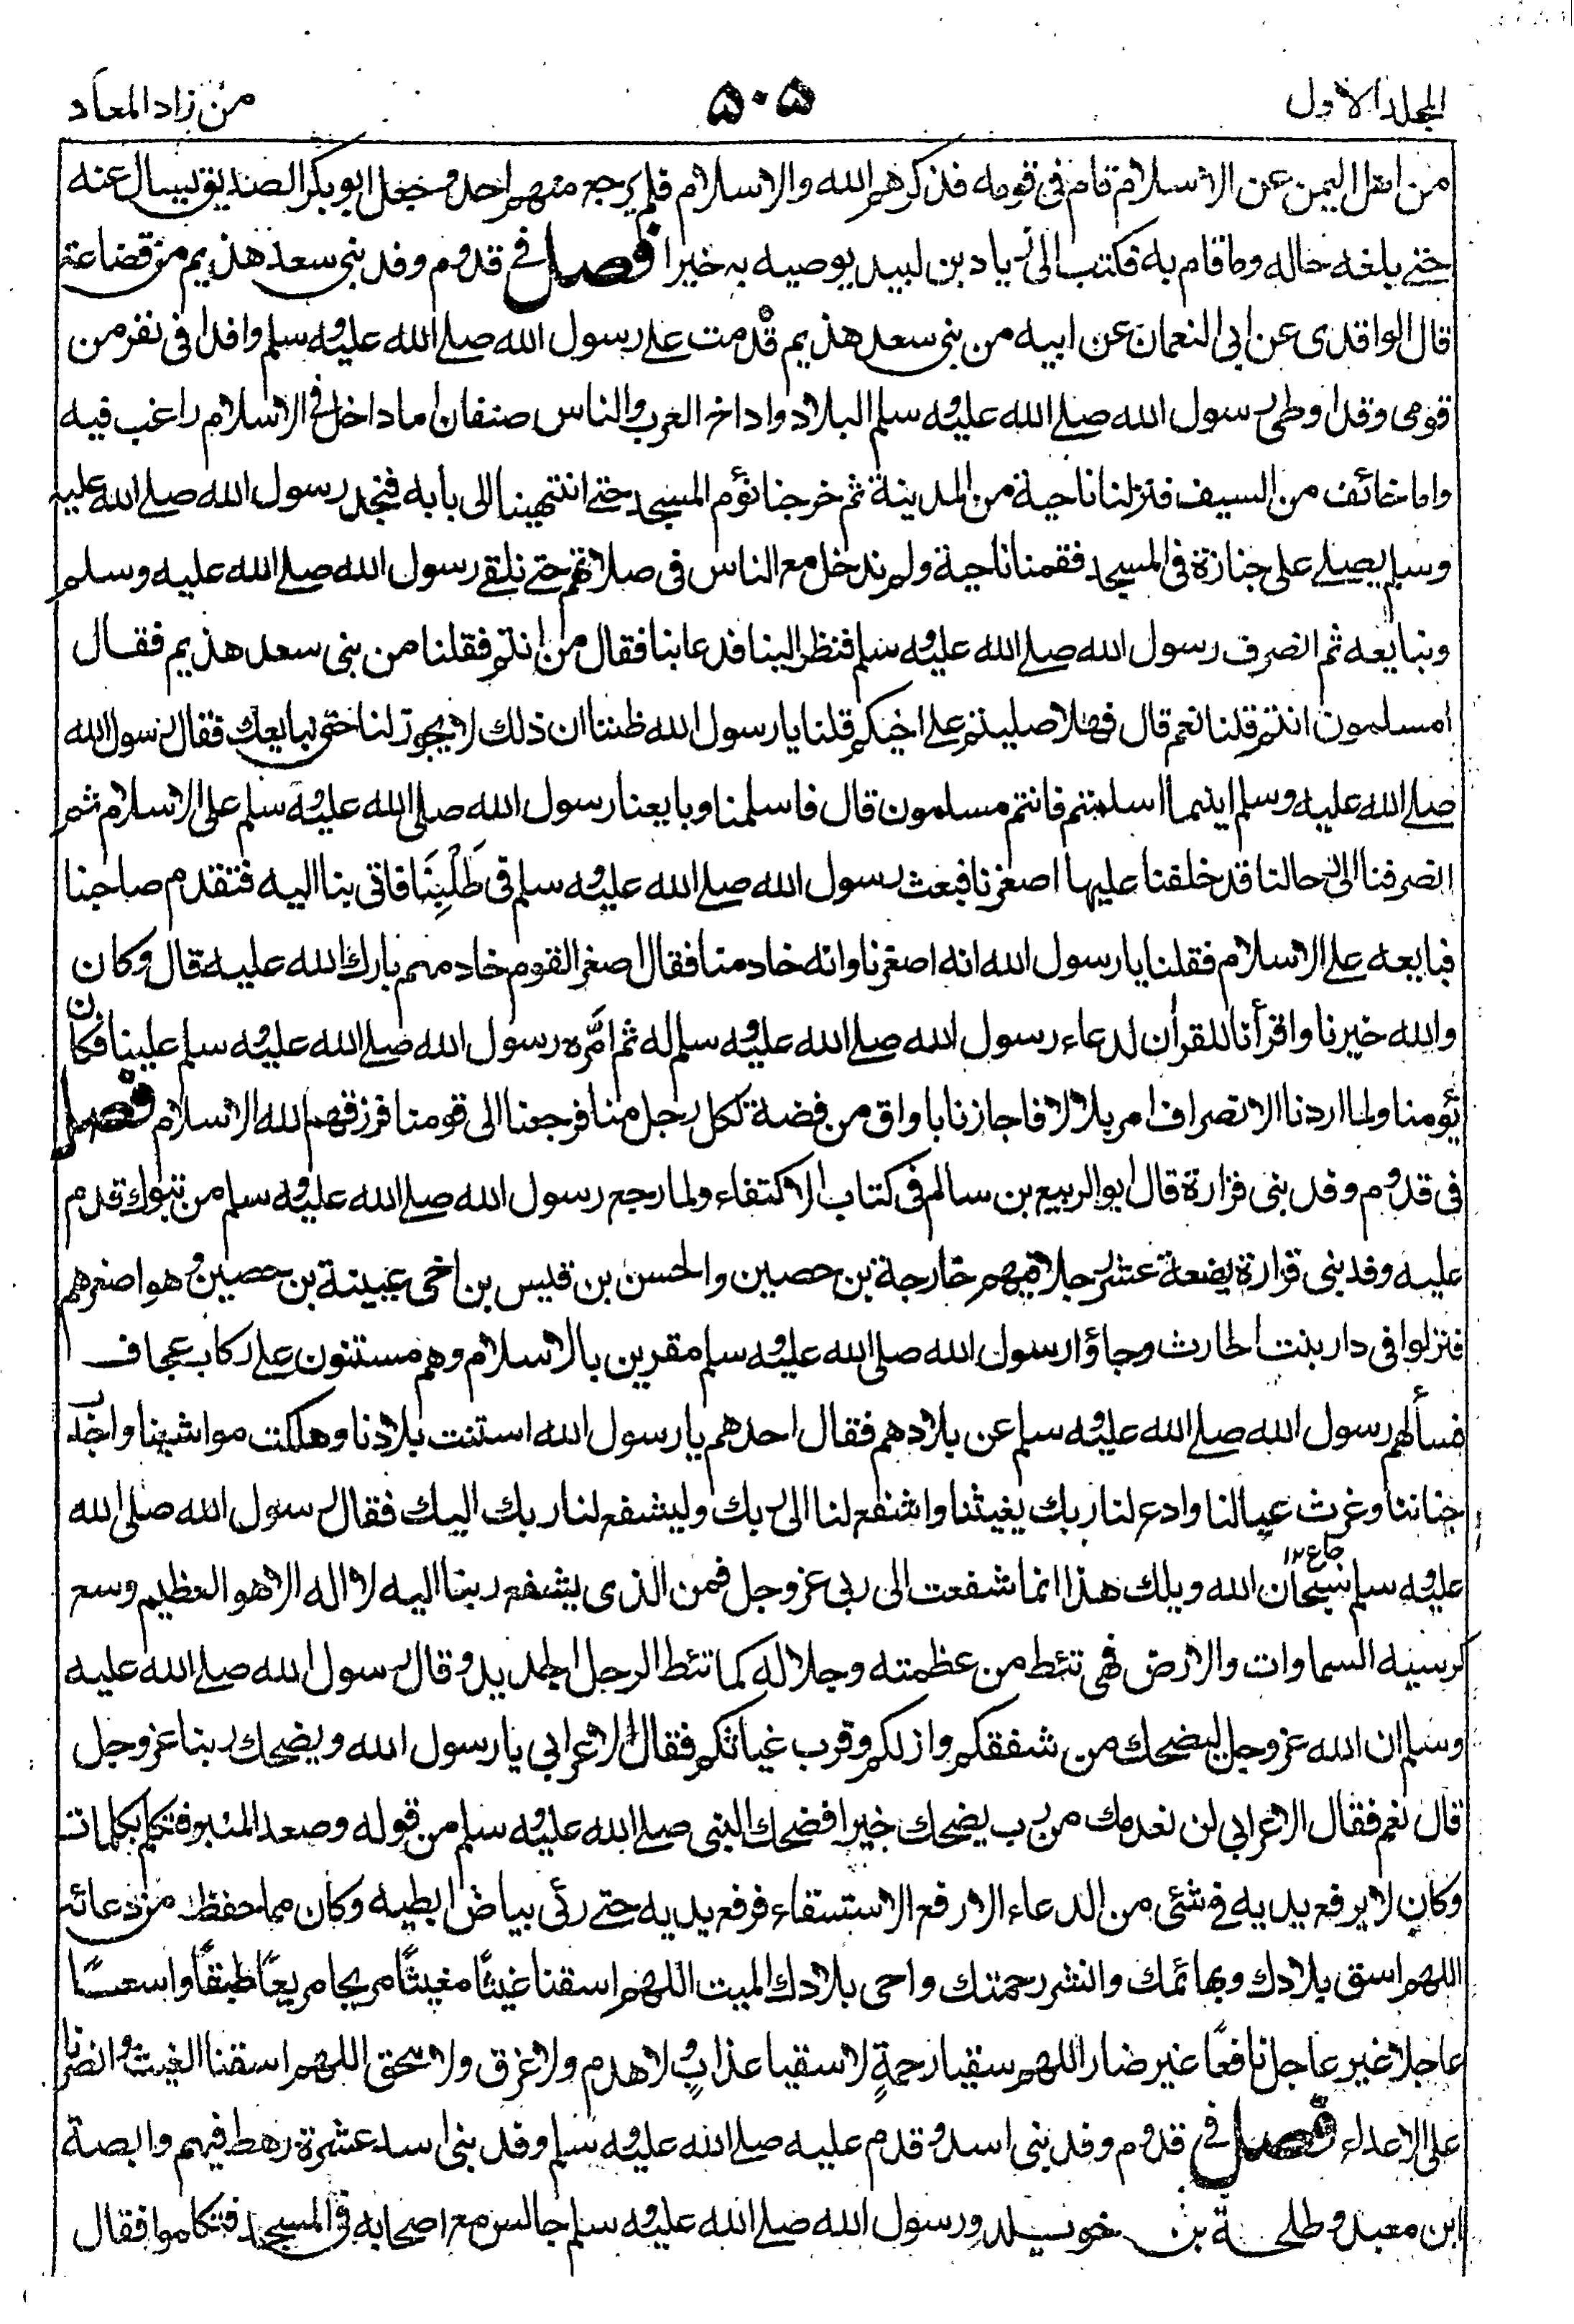 المجلد الاول
٥٠٥
من زاد المعاد
من اهل اليمن عن الاسلام قام فى قومه فذكرهم الله والاسلام فلم يرجع منهم احد وجعل ابو بكر الصديق يسال عنه
حتے بلغه حاله وما قام به فكتب الى زياد بن لبيد يوصيه به خيرا فصل فے قدوم وفد بنى سعد هذيم من قضاعة
قال الواقدى عن ابى النعمان عن ابيه من بنى سعد هذيم قدمت علے رسول الله صلے الله عليه وسلم وافدا فى نفر من
قومى وقد اوطى رسول الله صلے الله عليه وسلم البلاد واداخ العرب والناس صنفان اما داخل فى الاسلام راغب فيه
واما خائف من السيف فنزلنا ناحية من المدينة ثم خرجنا نؤم المسجد حتے انتهينا الى بابه فنجد رسول الله صلے الله عليه
وسلم يصلے على جنازة فى المسجد فقمنا ناحية ولم ندخل مع الناس فى صلاتهم حتے نلقے رسول الله صلے الله عليه وسلم
ونبايعه ثم انصرف رسول الله صلے الله عليه وسلم فنظر الينا فدعا بنا فقال من انتم فقلنا من بنى سعد هذيم فقال
امسلمون انتم قلنا نعم قال فهلا صليتم علے اخيكم قلنا يا رسول الله ظننا ان ذلك لا يجوز لنا حتى نبايعك فقال رسول الله
صلے الله عليه وسلم اينما اسلمتم فانتم مسلمون قال فاسلمنا وبايعنا رسول الله صلى الله عليه وسلم على الاسلام ثم
انصرفنا الى رحالنا قد خلفنا عليها اصغرنا فبعث رسول الله صلے الله عليه وسلم فى طَلَبِنَا فاتى بنا اليه فتقدم صاحبنا
فبايعه علے الاسلام فقلنا يا رسول الله انه اصغرنا وانه خادمنا فقال اصغر القوم خادمهم بارك الله عليه قال وكان
والله خيرنا واقرأنا للقرأن لدعاء رسول الله صلے الله عليه وسلم له ثم امَّره رسول الله صلے الله عليه وسلم علينا فكان
يؤمنا ولما اردنا الانصراف امر بلالا فاجازنا باواق من فضة لكل رجل منا فرجعنا الى قومنا فرزقهم الله الاسلام فصل
فى قدوم وفد بنى فزارة قال ابو الربيع بن سالم فى كتاب الاكتفاء ولما رجع رسول الله صلے الله عليه وسلم من تبوك قدم
عليه وفد بنى فزارة بضعة عشر رجلا منهم خارجة بن حصين والحسن بن قيس بن اخى عيينة بن حصين وهو اصغرهم
فنزلوا فى دار بنت الحارث وجاؤا رسول الله صلى الله عليه وسلم مقرين بالاسلام وهم مستنون علے ركاب عجاف
فسألهم رسول الله صلے الله عليه وسلم عن بلادهم فقال احدهم يا رسول الله استنت بلادنا وهلكت مواشينا واجدب
جنابنا وغرث عيالنا وادع لنا ربك يغيثنا واشفع لنا الى ربك وليشفع لنا ربك اليك فقال رسول الله صلى الله
جاع ١٢
عليه وسلم سبحان الله ويلك هذا انما شفعت الى ربى عز وجل فمن الذى يشفع ربنا اليه لا اله الا هو العظيم وسع
كرسيه السماوات والارض فهى تئط من عظمته وجلاله كما تئط الرحل الجديد وقال رسول الله صلے الله عليه
وسلم ان الله عز وجل ليضحك من شفقكم وازلكم وقرب غياثكم فقال الاعرابى يا رسول الله ويضحك ربنا عز وجل
قال نعم فقال الاعرابى لن نعدمك من رب يضحك خيرا فضحك النبى صلے الله عليه وسلم من قوله وصعد المنبر وفتكلم بكلمات
وكان لا يرفع يديه فے شئى من الدعاء الا رفع الاستسقاء فرفع يديه حتے رئى بياض ابطيه وكان مما حفظ من دعائه
اللهم اسق بلادك وبهائمك وانشر رحمتك واحى بلادك الميت اللهم اسقنا غيثًا مغيثًا مريحا مريعًا طبقًا واسعًا
عاجلا غير عاجل نافعًا غير ضار اللهم سقيا رحمةٍ لا سقيا عذابٍ ولا هدم ولا غرق ولا محق اللهم اسقنا الغيث وانصرنا
على الاعداء فصل فے قدوم وفد بنى اسد وقدم عليه صلے الله عليه وسلم وفد بنى اسد عشرة رهط فيهم وابصة
ابن معبد وطلحة بن خويلد ورسول الله صلے الله عليه وسلم جالس مع اصحابه فى المسجد فتكلموا فقال